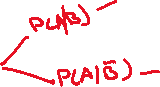 P(A|B)
P(A|B̄)